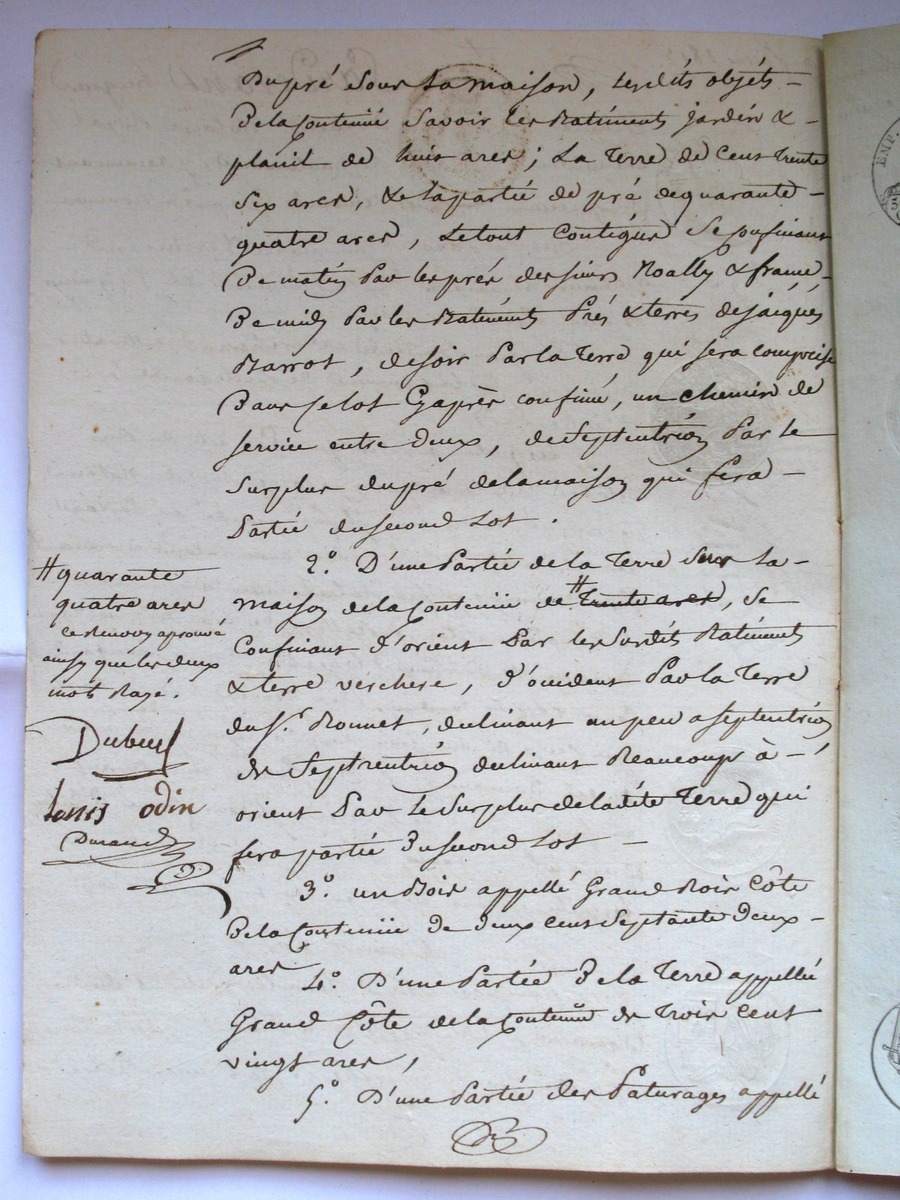 Du pré Sous La maison, lesdits objéts -
De la Contenüe Savoir les Batiments jardin &
plani de huit ares; La Terre de Cent Trente
Six ares, & la partie de pré de quarante -
quatre ares, Le tout Contigus Se Confinant
De matin Par les prés des sieurs & frame,
De midy Par les Batiments Prés & terres de jacques
Barrot, de soir Par la Terre qui sera comprise
Dans Le lot Cy après confiné, un chemin de
service entre deux, de Septentrion Par le
Surplus du pré de la maison qui fera -
Partie du second Lot.
2.° D'une Partie de la Terre Sur La -
maison de la Contenüe de # Trente ares, Se
Confinant d'orient Par les Susdits Batiments
& terre verchere, d'occident Par la Terre
du S.r Bonnet, declinant un peu a septentrion
de Septentrion declinant Beaucoup à -
orient Par Le Surplus de la dite Terre qui
fera partie Du second Lot -
3.° un Bois appellé Grand Bois Côte
De la Contenüe de deux cent Septante deux -
ares
4.° D'une Partie De la Terre appellée
Grand Côte de la Contenüe de Trois Cent
vingt ares,
5.° D'une Partie des Paturages appellé
# quarante
quatre ares
ce Renvoy aprouvé
ainsy que les deux
mots Rayé.
Dubeuf
Louis odin
Durand
EMP.